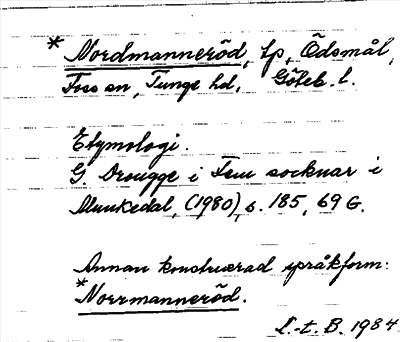 * Nordmanneröd, Lp, Ödsmål,
Foss sn, Tunge hd, Göteb. l.
Etymologi.
G Drougge i Fem socknar i
Munkedal, (1980), s. 185, 69 G.
Annan konstruerad språkform:
*Norrmanneröd.
L.-t. B. 1984